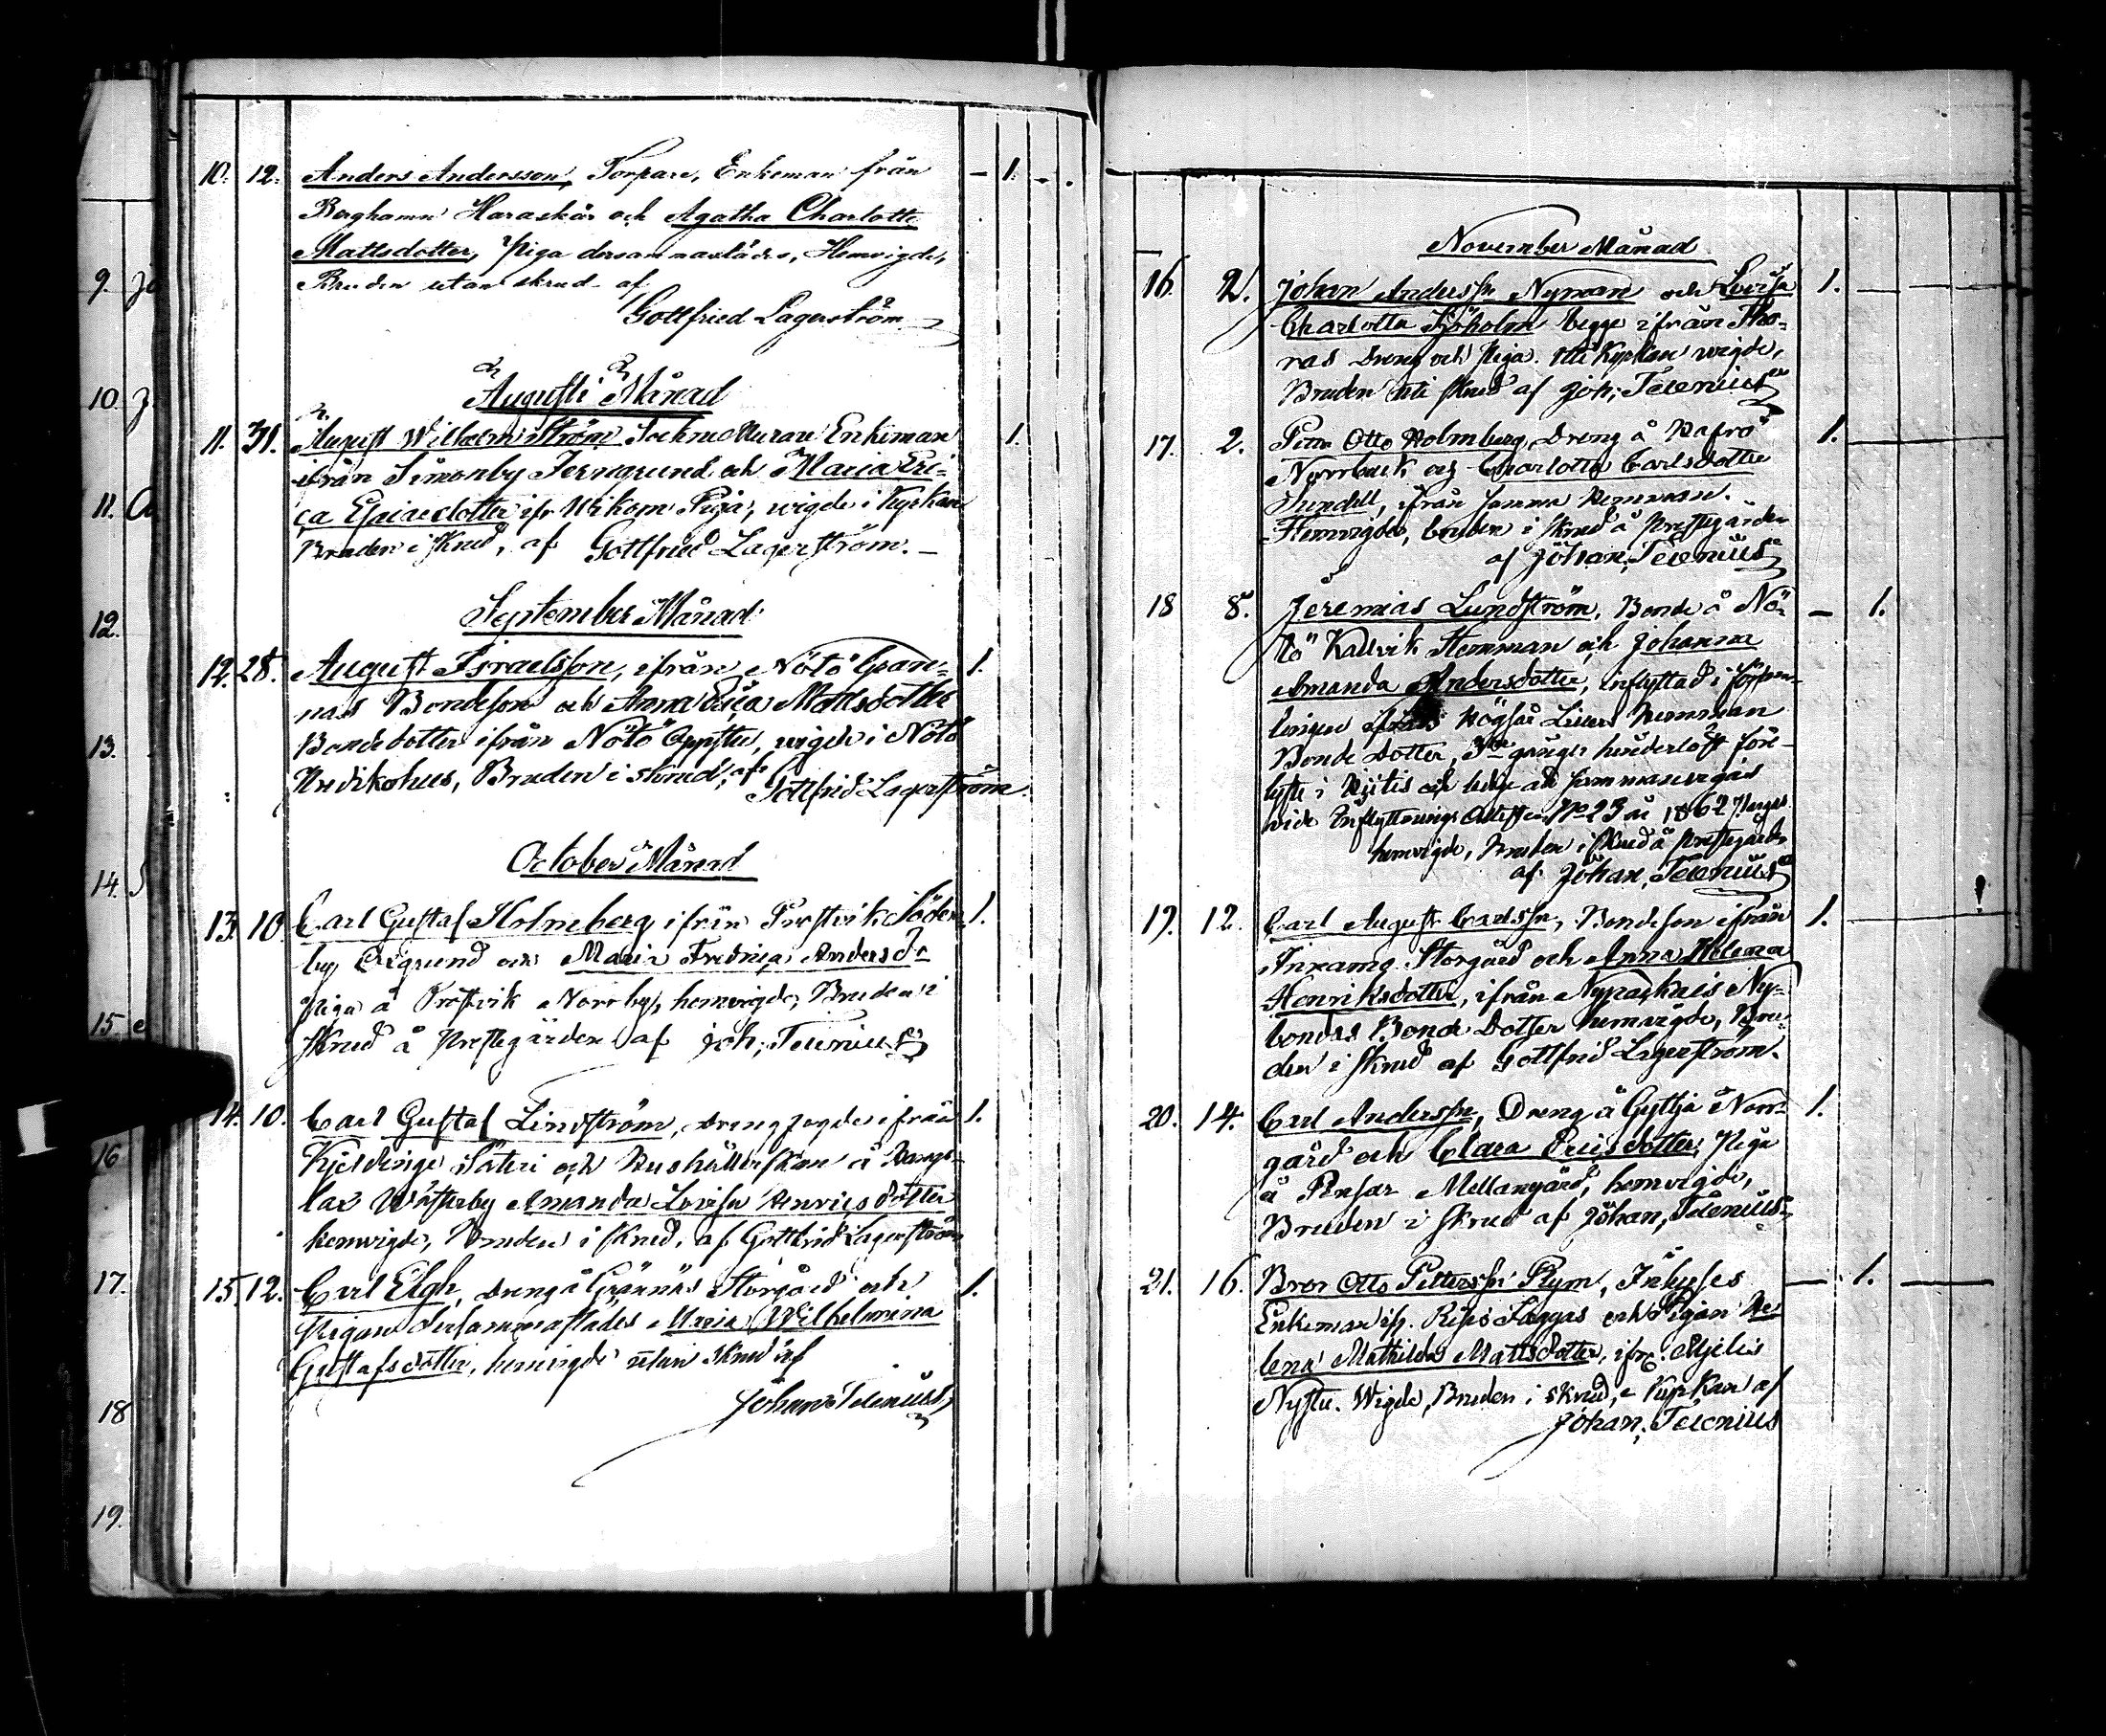 10. 12. Anders Andersson, Torpare, Enkeman från - 1. -
Berghamn Haraskär och Agatha Charlotta
Mattsdotter, Piga dersammastädes, Hemvigde,
Bruden utan skrud af
Gottfried Lagerström
Augusti Månad
11. 31. August Wilhelm Ström, Enkeman 1.
ifrån Simonby Jerngrund och Maria Eri-
ca Esaiaedotter ifr. Piga, wigde i Kyrkan
Bruden i skrud, af Gottfried Lagerström.
September Månad
12. 28. August Israelsson, ifrån Nötö Gran- 1.
nas Bondeson och Anna Erica Mattsdotter
Bondedotter ifrån Nötö Oppstu, wigde i Nötö
Predikohus, Bruden i skrud, af Gottfrid Lagerström.
October Månad
13. 10. Carl Gustaf Holmberg ifrån Prostvik Söder- 1.
by och Maria Fredrica Andersdr
Piga å Prostvik Norrby, hemvigde, Bruden i
skrud å Prestegården af Joh; Telenius
14. 10. Carl Gustaf Lindström, Drengfogde ifrån 1.
Kjeldinge Säteri och Hushållerskan å
lax Wästerby Amanda Lovisa Henricsdotter
hemvigde, Bruden i skrud, af Gottfrid Lagerström
15. 12. Carl Elgh, Dreng å Grännäs Storgård och 1.
Pigan dersammastädes Maria Wilhelmina
Gustafsdotter, hemvigde utan skrud af
Johan Telenius
November Månad
16. 2. Johan Anderssn Nyman och Lovisa 1.
Charlotta Sjöholm begge ifrån
nas Dreng och Piga. uti Kyrkan wigde,
Bruden uti skrud af Joh; Telenius
17. 2. Otto Holmberg, Dreng å 1.
Norrback och Charlotta Carlsdotter
Sundell, ifrån samma Hemman.
Hemvigde, bruden i skrud å Prestegården
af Johan; Telenius
18 8. Jeremias Lundström, Bonde å Nö- - 1.
tö Kallvik Hemman och Johanna
Amanda Andersdotter, inflyttad i
ifrån Högsar Hemman
Bonde Dotter, 3ne gånger hinderlöst
lyste i och
wide Inflyttnings Attesten No 23 1862
hemvigde, Bruden i skrud å Prestegården
af Johan, Telenius
19. 12. Carl August Carlssn, Bondeson ifrån 1.
Storgård och Anna Helena
Henriksdotter, ifrån Ny-
bondas Bonde Dotter hemvigde, Bru-
den i skrud af Gottfrid Lagerström.
20. 14. Carl Anderssn, Dreng å Gyttja Norr- 1.
gård och Clara Ericsdotter, Piga
å Pensar Mellangård, hemvigde,
Bruden i skrud af Johan, Telenius
21. 16. Bror Otto Petterssn Plym, Inhyses - 1.
Enkeman ifr. och Pigan He-
lena Mathilda Mattsdotter, ifr. Mjelis
Nystu. Wigde, Bruden i skrud, i Kyrkan af
Johan, Telenius
9.
10.
11.
12.
13.
14.
15
16
17.
18
19.